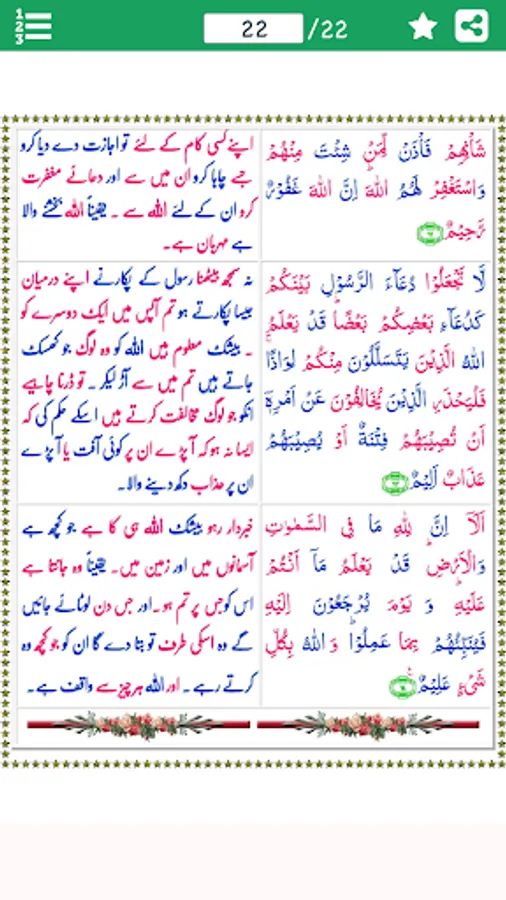 1
2
3
22 /22
شَأْنِهِمْ فَأْذَنْ لِّمَنْ شِئْتَ مِنْهُمْ
وَاسْتَغْفِرْ لَهُمُ اللهَ اِنَّ اللهَ غَفُوْرٌ
رَّحِيْمٌ
اپنے کسی کام کے لئے تو اجازت دے دیا کرو
جسے چاہا کرو ان میں سے اور دعائے مغفرت
کرو ان کے لئے اللہ سے ۔ یقیناً اللہ بخشنے والا
ہے مہربان ہے۔
لَا تَجْعَلُوْا دُعَآءَ الرَّسُوْلِ بَيْنَكُمْ
كَدُعَآءِ بَعْضِكُمْ بَعْضًا قَدْ يَعْلَمُ
اللهُ الَّذِيْنَ يَتَسَلَّلُوْنَ مِنْكُمْ لِوَاذًا
فَلْيَحْذَرِ الَّذِيْنَ يُخَالِفُوْنَ عَنْ اَمْرِهٖٓ
اَنْ تُصِيْبَهُمْ فِتْنَةٌ اَوْ يُصِيْبَهُمْ
عَذَابٌ اَلِيْمٌ
نہ سمجھ بیٹھنا رسول کے پکارنے اپنے درمیان
جیسا پکارتے ہو تم آپس میں ایک دوسرے کو
۔ بیشک معلوم ہیں اللہ کو وہ لوگ جو کھسک
جاتے ہیں تم میں سے آڑ لیکر ۔ تو ڈرنا چاہیے
انکو جو لوگ مخالفت کرتے ہیں اسکے حکم کی کہ
ایسا نہ ہو کہ آپڑے ان پر کوئی آفت یا آپڑے
ان پر عذاب دکھ دینے والا۔
اَلَآ اِنَّ لِلّٰهِ مَا فِى السَّمٰوٰتِ
وَالْاَرْضِ قَدْ يَعْلَمُ مَآ اَنْتُمْ
عَلَيْهِ وَ يَوْمَ يُرْجَعُوْنَ اِلَيْهِ
فَيُنَبِّئُهُمْ بِمَا عَمِلُوْا وَ اللهُ بِكُلِّ
شَىْءٍ عَلِيْمٌ
خبردار رہو بیشک اللہ ہی کا ہے جو کچھ ہے
آسمانوں میں اور زمین میں۔ یقیناً وہ جانتا ہے
اس کو جس پر تم ہو ۔اور جس دن لوٹائے جائیں
گے وہ اسکی طرف تو بتا دے گا ان کو جو کچھ وہ
کرتے رہے ۔ اور اللہ ہر چیز سے واقف ہے۔